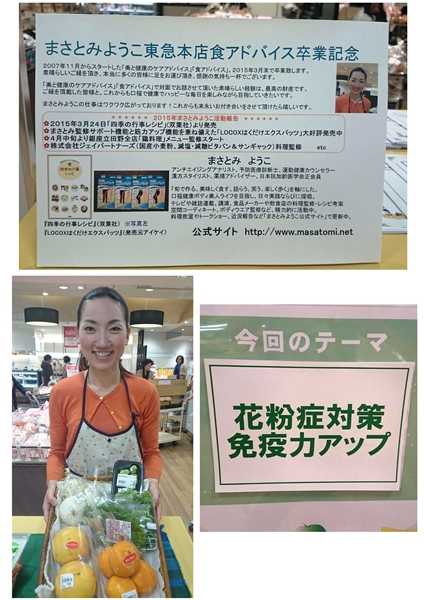 まさとみようこ東急本店食アドバイス卒業記念
2007年11月からスタートした「美と健康のケアアドバイス」「食アドバイス」。2015年3月末で卒業致します。
素晴らしいご縁を頂き、本当に多くの皆様に足をお運び頂き、感謝の気持ち一杯でございます。
「美と健康のケアアドバイス」「食アドバイス」で対面でお話させて頂いた素晴らしい経験は、最高の財産です。
ご縁を頂戴した皆様と、これからも口福で健康でハッピーな毎日を楽しみながら目指していきたいです。
まさとみようこの仕事はワクワク広がっております！これからも末永いお付き合いをさせて頂けたら嬉しいです。
****** 2015年まさとみようこ活動報告 ******
☆2015年3月24日『四季の行事レシピ』(双葉社)より発売
☆まさとみ監修サポート機能と筋力アップ機能を兼ね備えた「LOCOXはくだけエクスパッツ」大好評発売中
☆4月中旬より銀座立田野全店「麺料理」メニュー監修スタート
☆株式会社ジェイパートナーズ(国産小麦粉、減塩・減糖ピタパン＆サンギャック)料理監修 etc
四季の行事レシピ
『四季の行事レシピ』(双葉社) ※写真左
『LOCOXはくだけエクスパッツ』(発売元アイケイ)
まさとみ ようこ
アンチエイジングアナリスト、予防医療診断士、運動健康カウンセラー
漢方スタイリスト、薬膳アドバイザー、日本抗加齢医学会正会員
「旬で作る、美味しく食す、語らう、笑う、楽しく歩む」を軸にした、
口福健康ボディ美人ライフを目指し、日々実践ならびに提唱。
公式サイト http://www.masatomi.net
今回のテーマ
花粉症対策
免疫力アップ